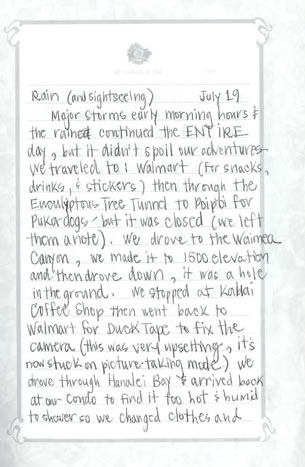 Rain (and sightseeing) July 19
Major storms early morning hours &
the rained continued the ENTIRE
day, but it didn't spoil our adventures
we traveled to 1 Walmart (for snacks,
drinks, & stickers) then through the
Eucolyptous Tree Tunnel to Poipoi for
Puka dogs but it was closed (we left
them a note). We drove to the Waimea
Canyon, we made it to 1500 elevation
and then drove down, it was a hole
in the ground. We stopped at Kauai
Coffee Shop then went back to
Walmart for Duck Tape to fix the
camera (this was very upsetting, it's
now stuck on picture taking mode) we
drove through Hanalei Bay & arrived back
at our condo to find it too hot & humid
to shower so we changed clothes and